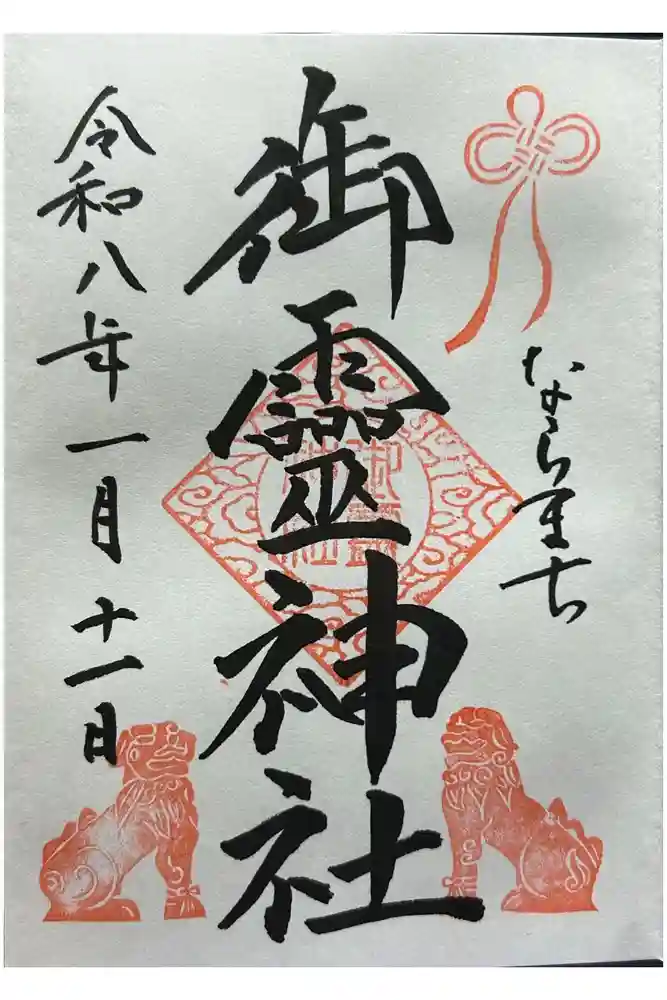 ならまち
御靈神社
令和八年一月十一日